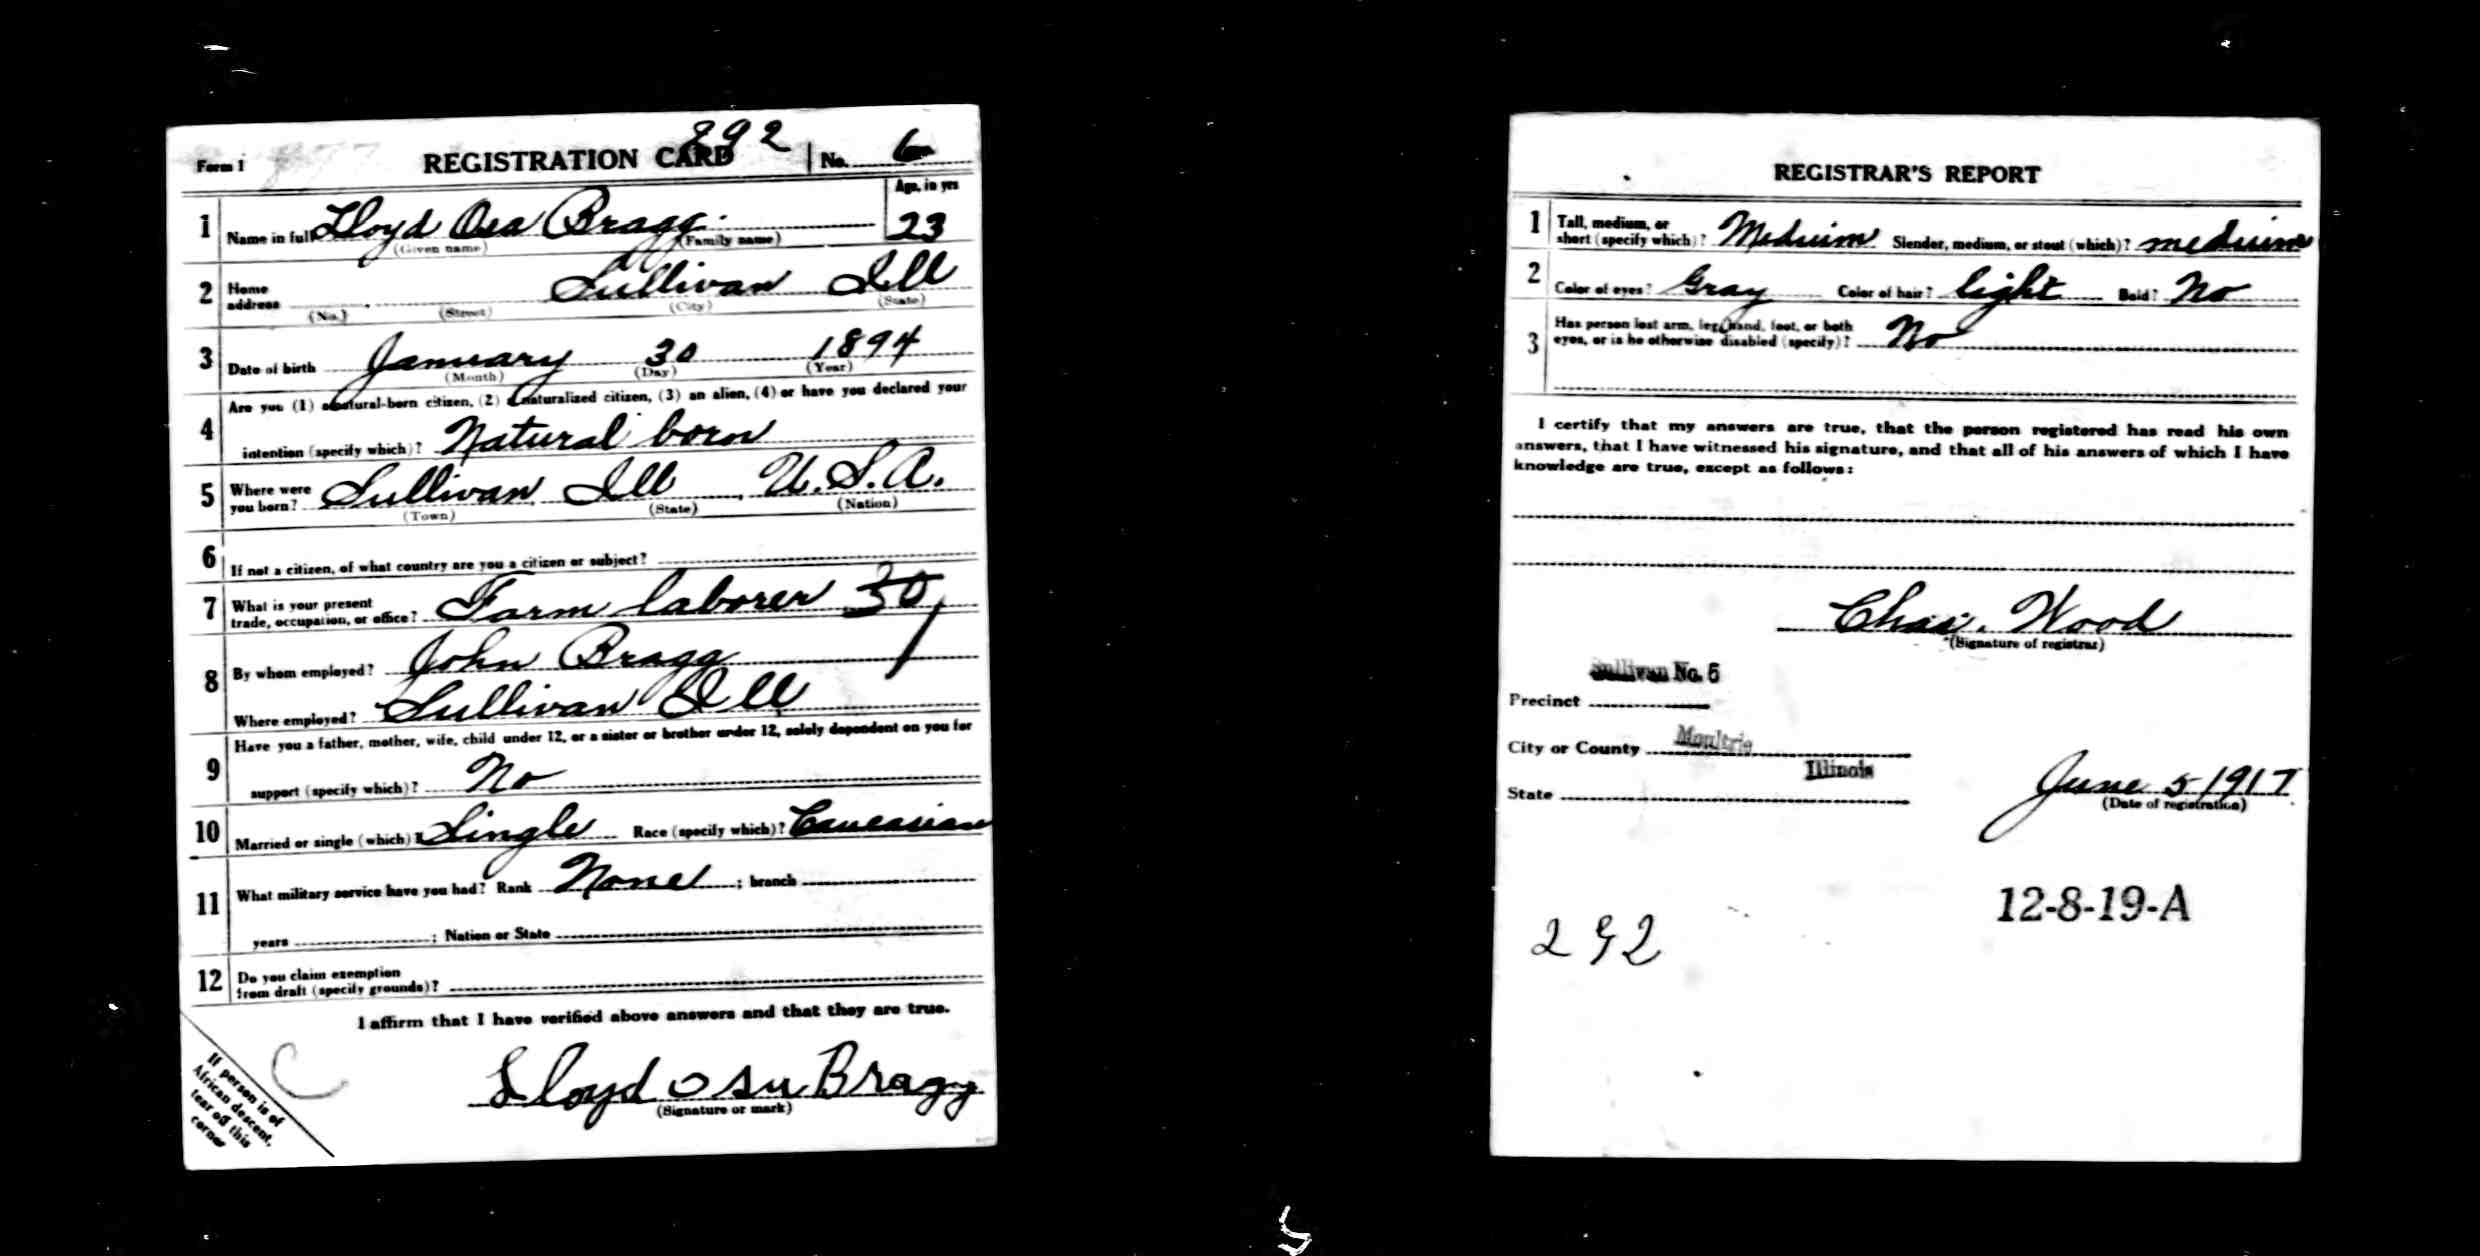 292
Form 1 REGISTRATION CARD No. 6
Age, in yrs
1 Name in full Lloyd Osa Bragg 23
(Given name) (Family name)
2 Home address Sullivan Ill
(No.) (Street) (City) (State)
3 Date of birth January 30 1894
(Month) (Day) (Year)
4 Are you (1) a natural-born citizen, (2) a naturalized citizen, (3) an alien, (4) or have you declared your
intention (specify which)? Natural born
5 Where were you born? Sullivan Ill U.S.A.
(Town) (State) (Nation)
6 If not a citizen, of what country are you a citizen or subject?
7 What is your present trade, occupation, or office? Farm laborer 30
8 By whom employed? John Bragg
Where employed? Sullivan Ill
9 Have you a father, mother, wife, child under 12, or a sister or brother under 12, solely dependent on you for
support (specify which)? No
10 Married or single (which)? Single Race (specify which)? Caucasian
11 What military service have you had? Rank None ; branch
years ; Nation or State
12 Do you claim exemption from draft (specify grounds)?
I affirm that I have verified above answers and that they are true.
Lloyd Bragg
(Signature or mark)
If person is of
African descent,
tear off this
corner
C
REGISTRAR'S REPORT
1 Tall, medium, or short (specify which)? Medium Slender, medium, or stout (which)? medium
2 Color of eyes? Gray Color of hair? light Bald? No
3 Has person lost arm, leg, hand, foot, or both
eyes, or is he otherwise disabled (specify)? No
I certify that my answers are true, that the person registered has read his own
answers, that I have witnessed his signature, and that all of his answers of which I have
knowledge are true, except as follows:
Chas. Wood
(Signature of registrar)
Sullivan No. 5
Precinct
City or County Moultrie
Illinois
State
June 5 1917
(Date of registration)
12-8-19-A
292
5